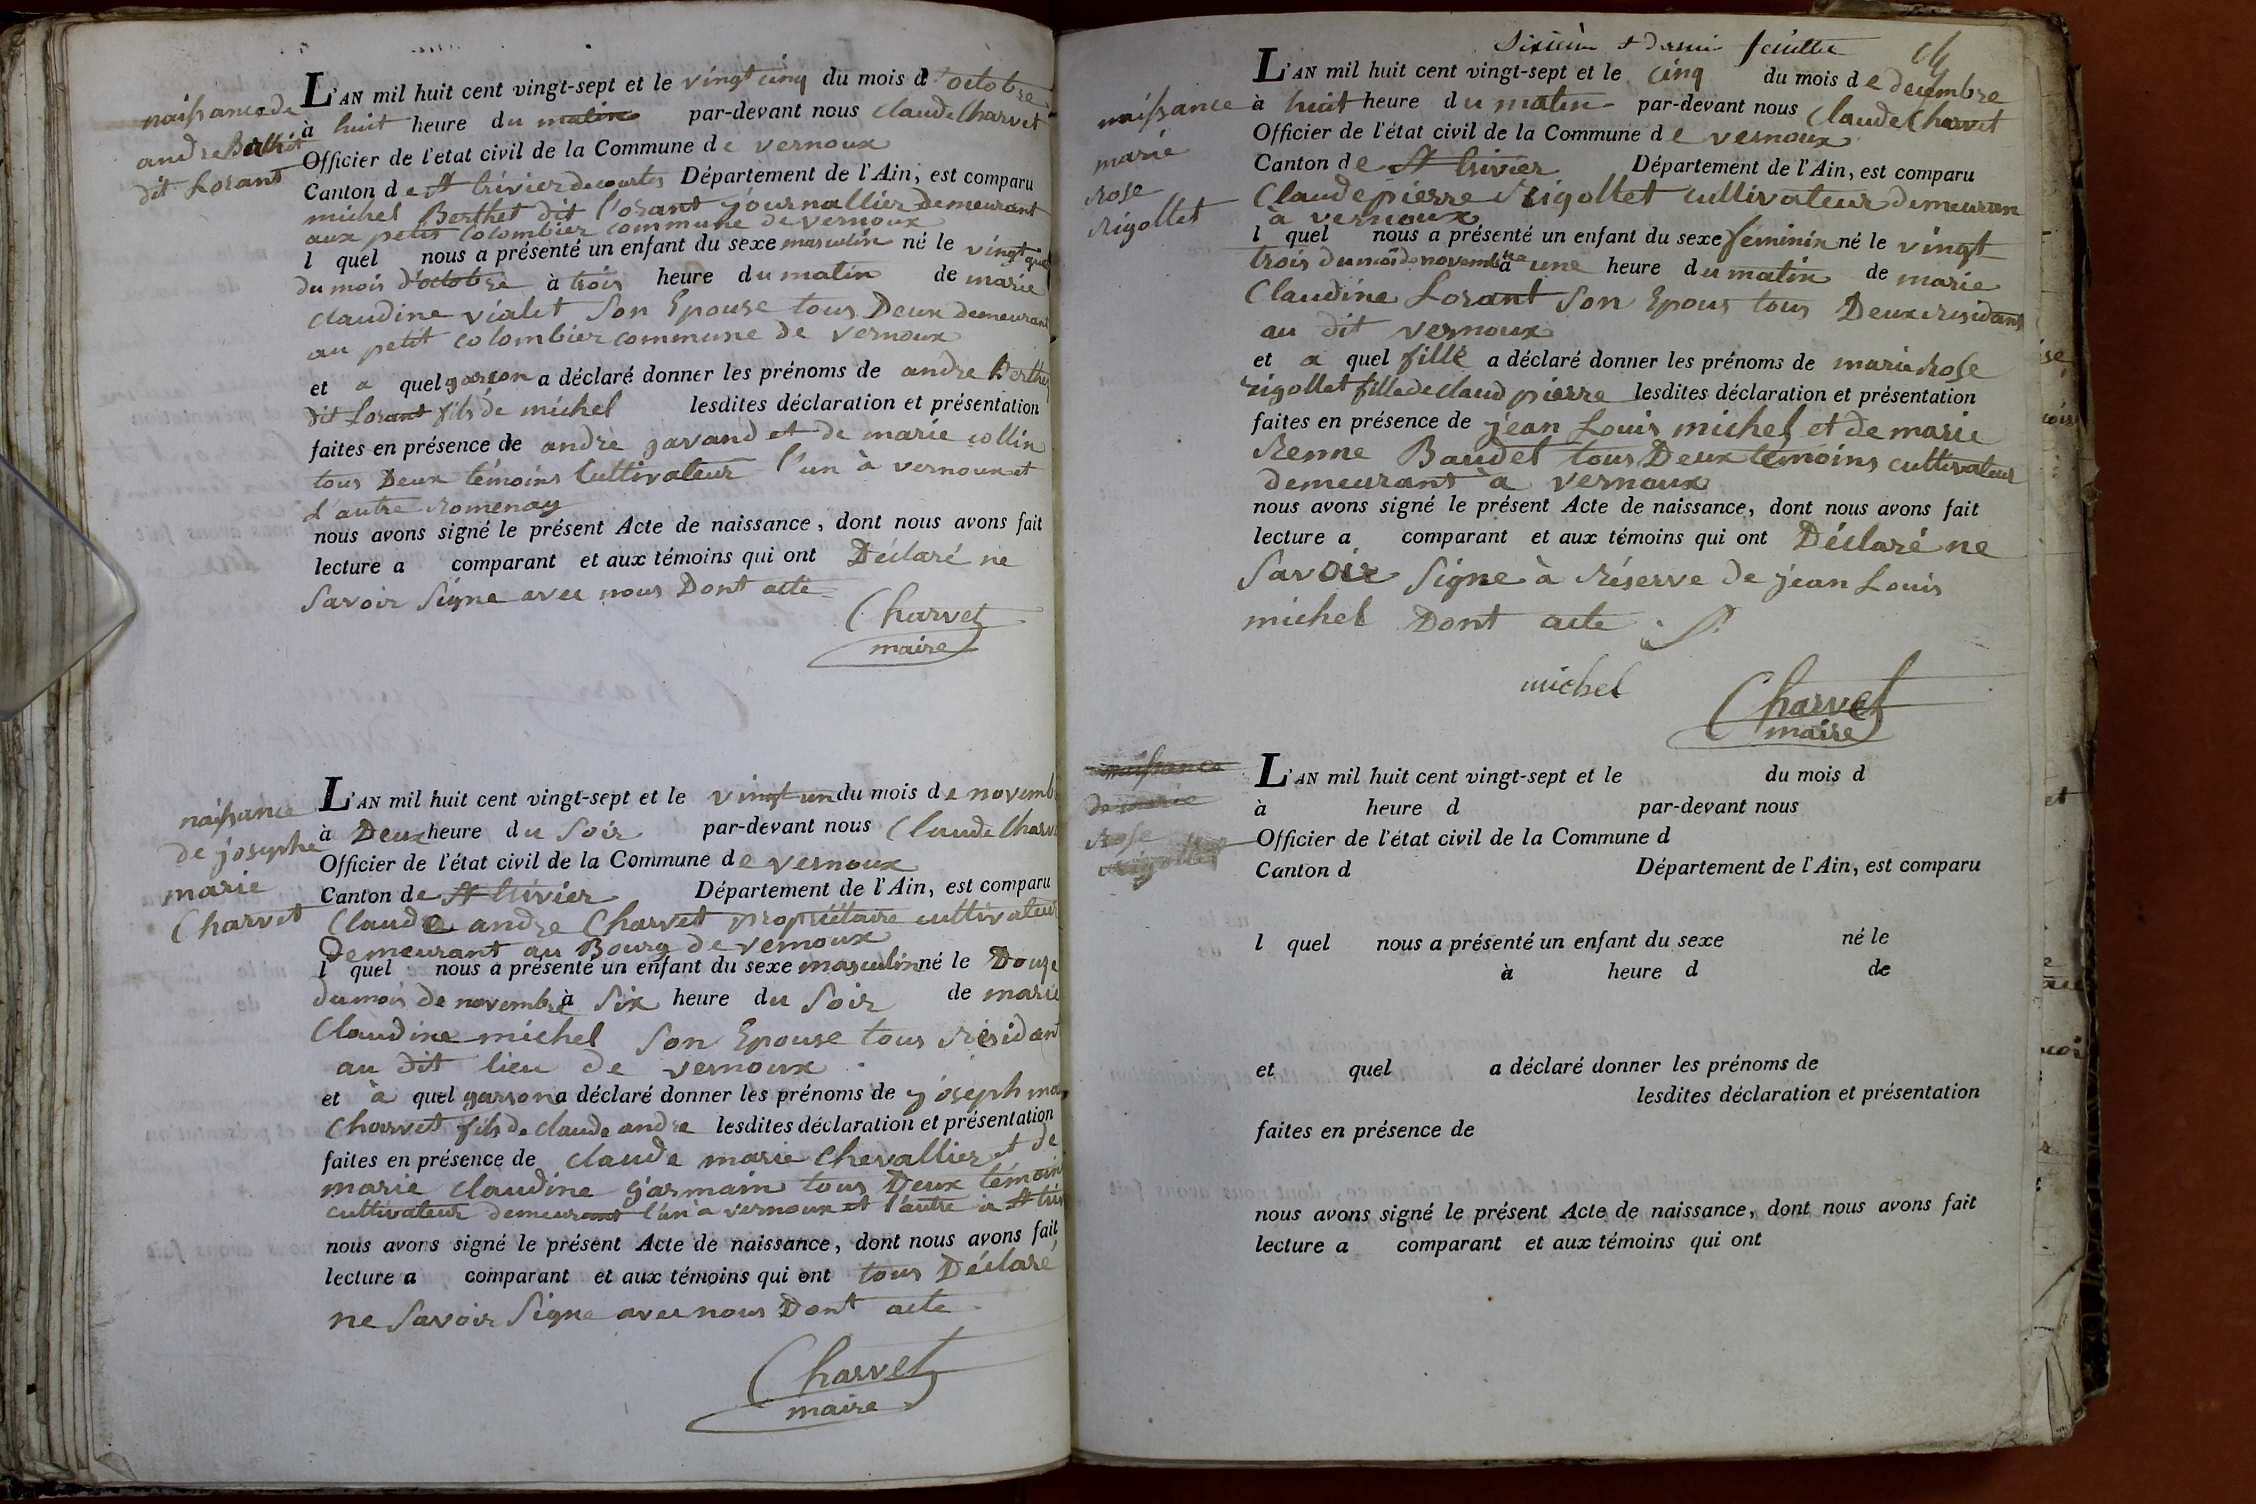 naissance de
andre Berthet
dit Lorant
L'AN mil huit cent vingt-sept et le vingt cinq du mois d'octobre
à huit heure du matin par-devant nous Claude Charvet
Officier de l'etat civil de la Commune de vernoux
Canton de St trivier de courtes Département de l'Ain, est comparu
michel Berthet dit l'orant journallier demeurant
aux petit colombier commune de vernoux
l quel nous a présenté un enfant du sexe masculin né le vingt
du mois d'octobre à trois heure du matin de marie
claudine vialet son Epouse tous Deux demeurant
au petit colombier commune de vernoux
et a quel garcon a déclaré donner les prénoms de andre Berthet
dit Lorant fils de michel lesdites déclaration et présentation
faites en présence de andré gavand et de marie collin
tous Deux témoins Cultivateur l'un à vernoux et
l'autre romenay
nous avons signé le présent Acte de naissance, dont nous avons fait
lecture a comparant et aux témoins qui ont Déclaré ne
savoir signe avec nous Dont acte
Charvet
maire
naissance
de josephe
marie
Charvet
L'AN mil huit cent vingt-sept et le vingt un du mois de novemb
à Deux heure du soir par-devant nous Claude Charv
Officier de l'état civil de la Commune de vernoux
Canton de St trivier Département de l'Ain, est comparu
Claude andre Charvet propriétaire cultivateur
Demeurant au Bourg de vernoux
l quel nous a présenté un enfant du sexe masculin né le Douze
du mois de novembre à six heure du soir de marie
Claudine michel son Epouse tous résidant
au dit lieu de vernoux
et à quel garson a déclaré donner les prénoms de joseph ma
Charvet fils de claude andre lesdites déclaration et présentation
faites en présence de claude marie Chevallier et de
marie claudine garmain tous Deux témoin
cultivateur demeurant l'un a vernoux et l'autre à St triv
nous avons signé le présent Acte de naissance, dont nous avons fait
lecture a comparant et aux témoins qui ont tous Déclaré
ne savoir signe avec nous Dont acte
Charvet
maire
Sixieme et dernier feuillet
naissance
marie
Rose
Rigollet
L'AN mil huit cent vingt-sept et le cinq du mois de decembre
à huit heure du matin par-devant nous Claude Charvet
Officier de l'état civil de la Commune de vernoux
Canton de St trivier Département de l'Ain, est comparu
Claude pierre Rigollet cultivateur demeuran
a vernoux
l quel nous a présenté un enfant du sexe féminin né le vingt
trois du moi de novembre à une heure du matin de marie
Claudine Lorant son Epous tous Deux residant
au dit vernoux
et a quel fille a déclaré donner les prénoms de marie Rose
rigollet fille de Claud pierre lesdites déclaration et présentation
faites en présence de jean Louis michel et de marie
Renne Baudet tous Deux temoins cultivateur
demeurant à vernoux
nous avons signé le présent Acte de naissance, dont nous avons fait
lecture a comparant et aux témoins qui ont Déclaré ne
savoir signe à réserve de jean Louis
michel Dont acte
michel
Charvet
maire
naissance
de marie
Rose
Rigollet
L'AN mil huit cent vingt-sept et le du mois d
à heure d par-devant nous
Officier de l'état civil de la Commune d
Canton d Département de l'Ain, est comparu
l quel nous a présenté un enfant du sexe né le
à heure d de
et quel a déclaré donner les prénoms de
lesdites déclaration et présentation
faites en présence de
nous avons signé le présent Acte de naissance, dont nous avons fait
lecture a comparant et aux témoins qui ont